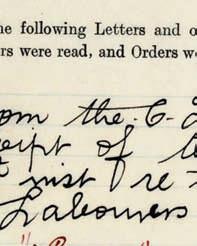 ne following Letters and o
rs were read, and Orders we
om the C.
eipt of le
inst re
Labourers